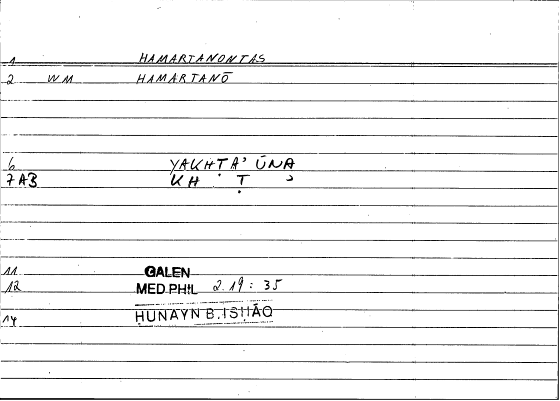 1 HAMARTANONTAS
2 WM HAMARTANŌ
6 YAKHṬAʾŪNA
7AB KH Ṭ ʾ
11 GALEN
12 MED.PHIL 2.19:35
14 ḤUNAYN B.ISḤĀQ